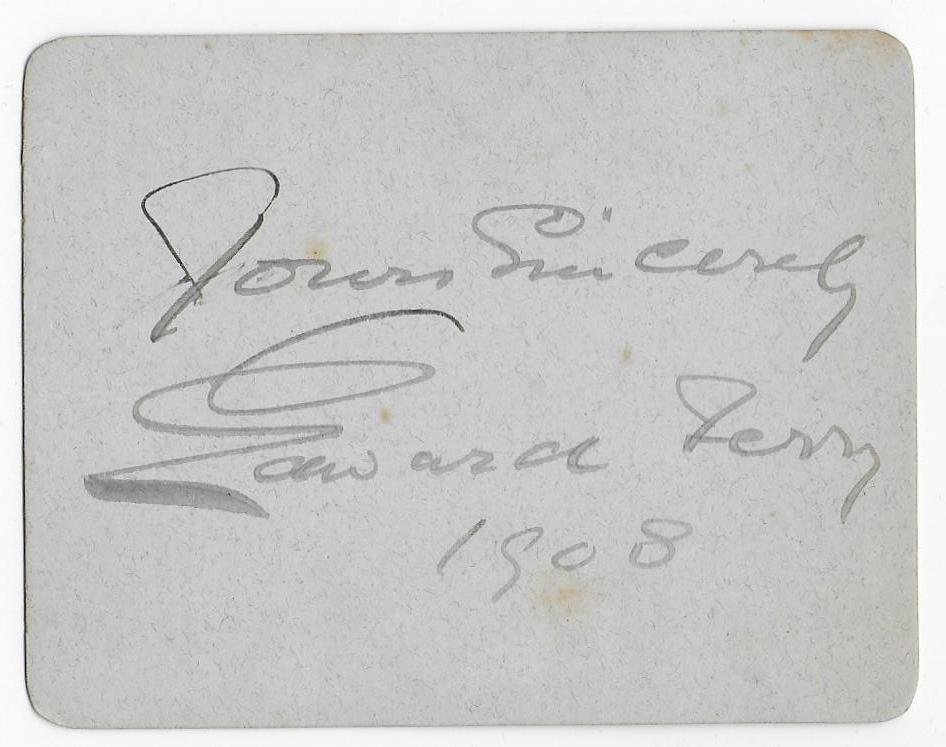 Yours Sincerely
Edward Terry
1908